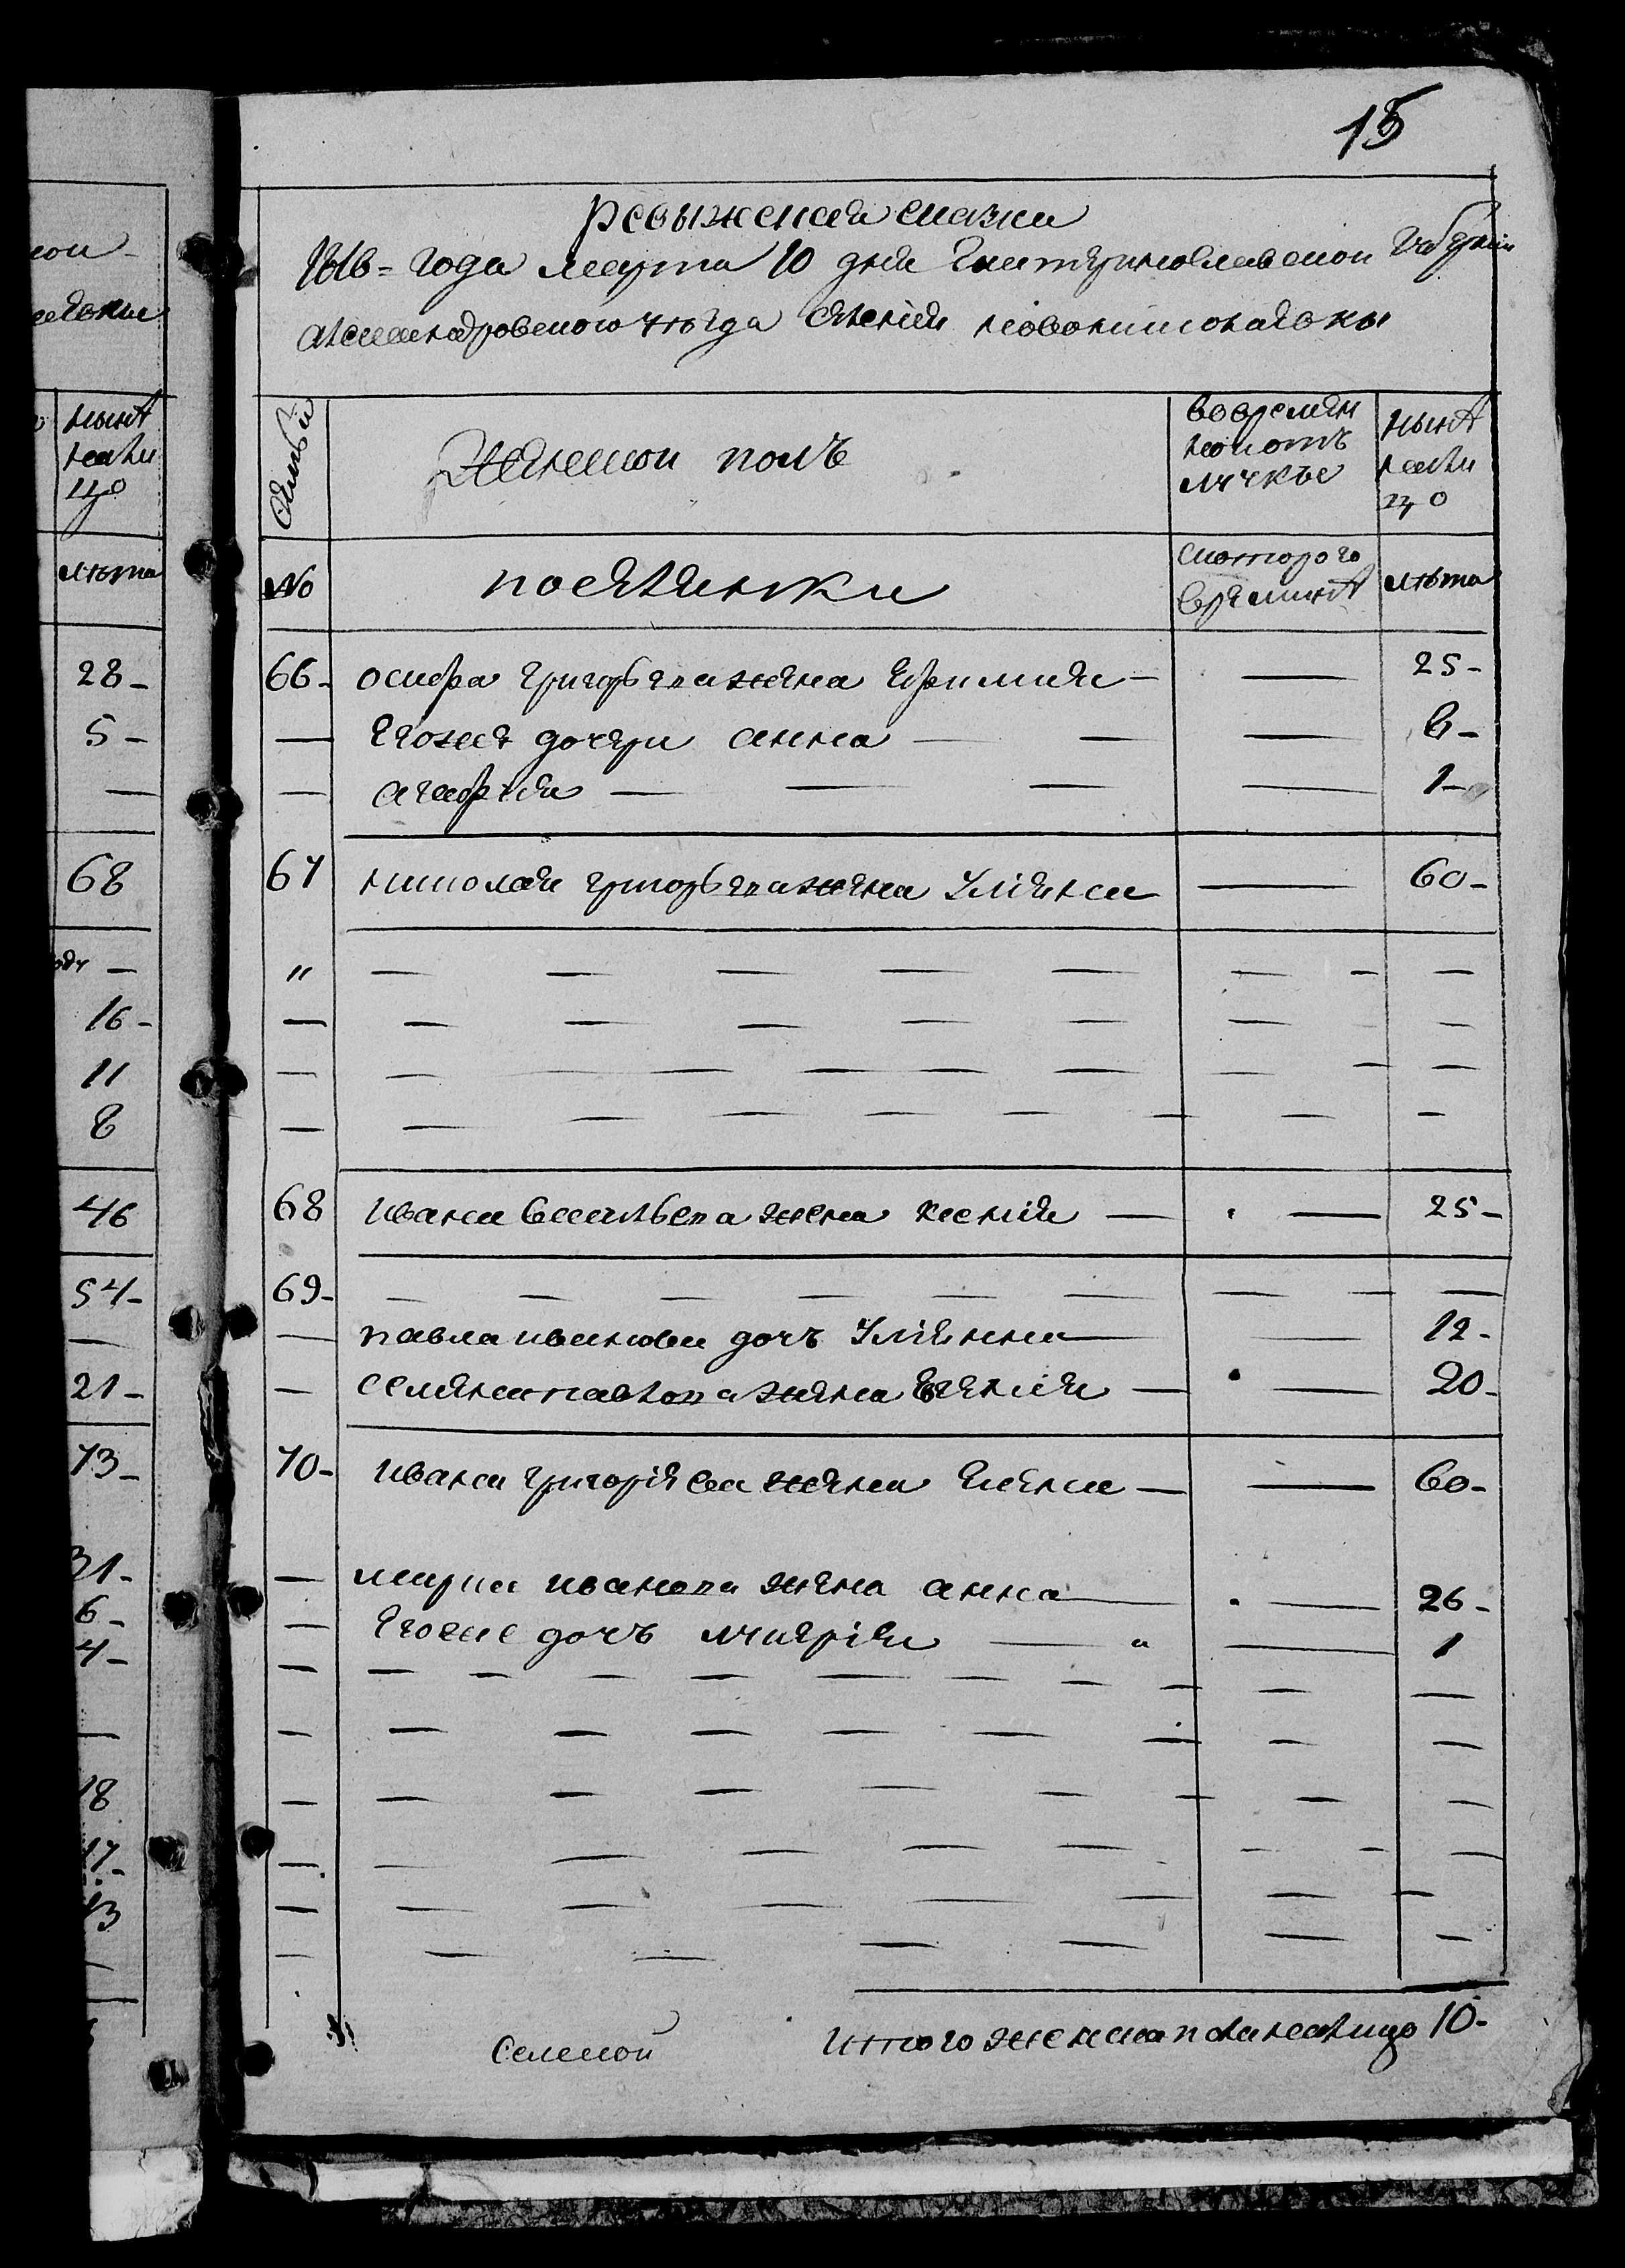 15
Ревыжская сказка
1816 = года марта 10 дня Екитяринославской Губернии
александровского уѣзда сяления новониколаявки
Сѣмьи
Жянской полъ
вовремян
ной отъ
лучкѣ
нынѣ
нали
цо
№
посялянки
скоторого
врямянѣ
лѣта
66 - осифа григорьява жяна Ефимия — — 25 -
— Егожя дочяри анна — — — 6 -
— агафия — — — — 1 -
67 николая григорьява жяна Улияна — 60 -
" — — — — — — — —
— — — — — — — — —
— — — — — — — — —
— — — — — — — — —
68 ивана васильева жена ксения — — 25 -
69 - — — — — — — — — —
— павла иванова дочъ Улиянна — — 12 -
— семяна павлова жяна Евгения — — 20 -
70 - ивана григориява жяна Елена — — 60 -
— марка иванова жяна анна — — 26 -
— Егоже дочъ мария — " — 1
— — — — — — — — — — —
— — — — — — — — —
— — — — — — — — —
— — — — — — — — —
— — — — — — — — —
— — — — — — — —
Итого женска пола налицо 10 -
Сельской
нынѣ
нали
цо
лѣта
28 -
5 -
—
68
—
16 -
11
8
46
54 -
—
21 -
73 -
31 -
6 -
4 -
—
18
17 -